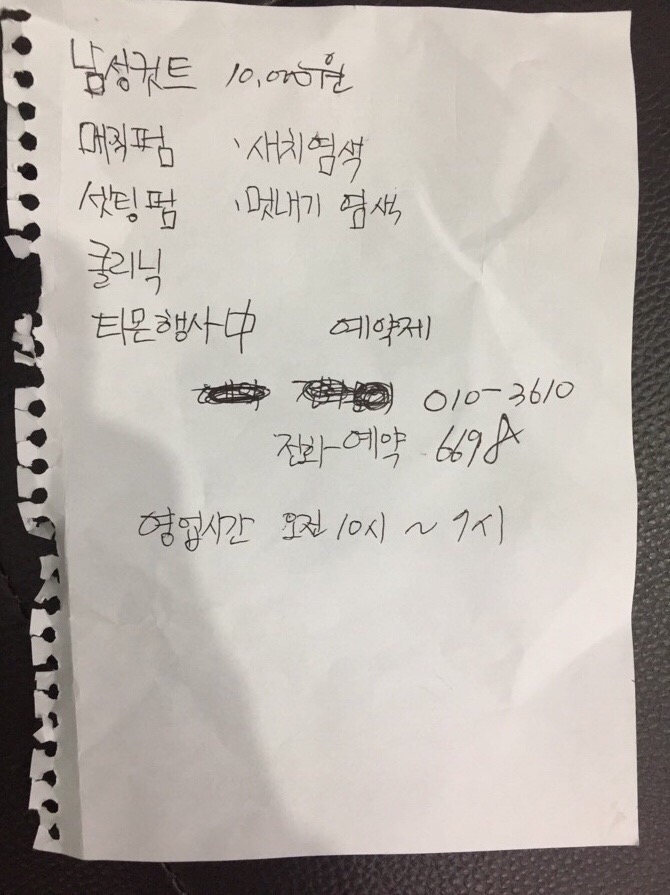 남성컷트 10,000원
매직펌 ·새치염색
셋팅펌 ·멋내기 염색
클리닉
티몬행사中 예약제
010-3610
전화-예약 6698
영업시간 오전 10시 ~ 9시